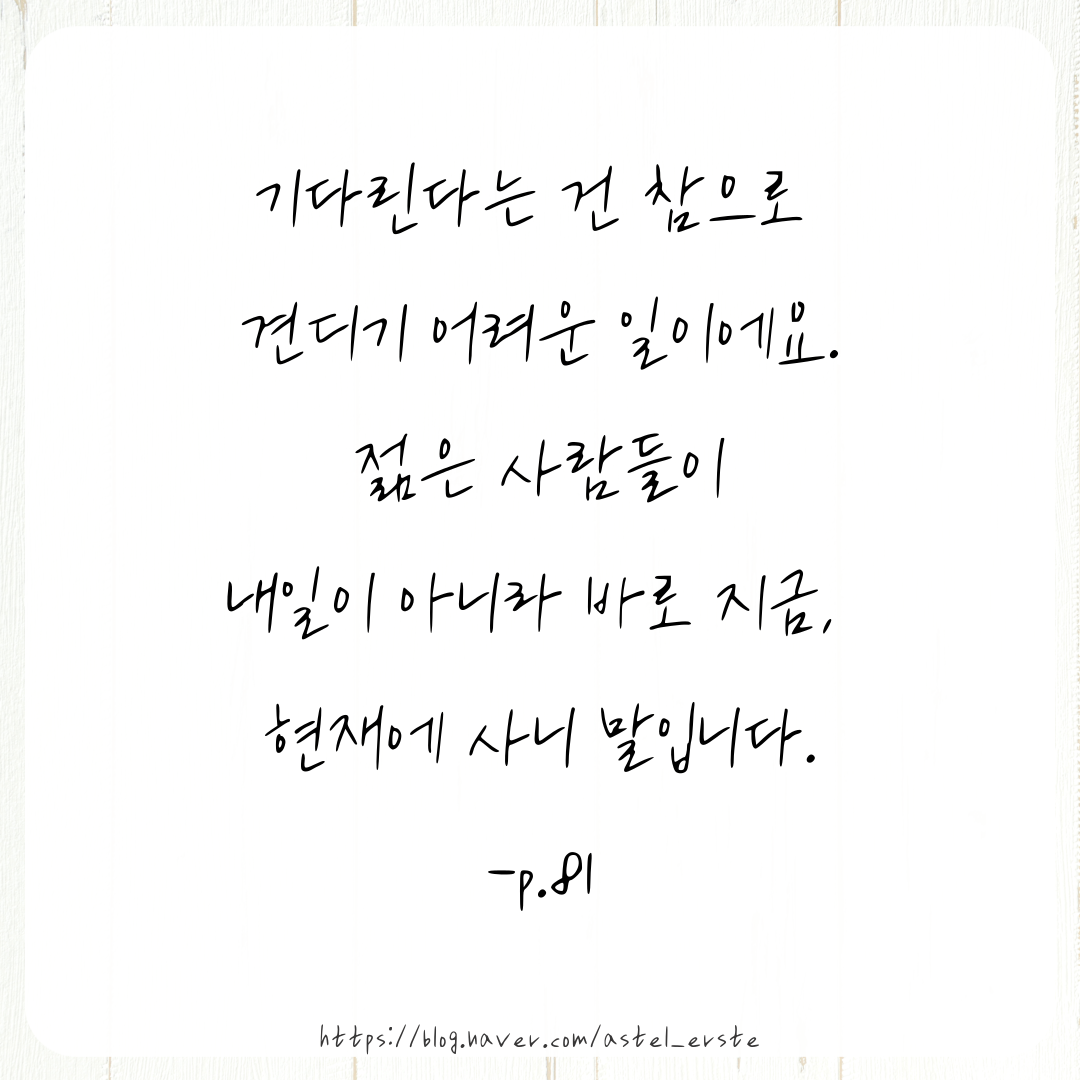 기다린다는 건 참으로
견디기 어려운 일이에요.
젊은 사람들이
내일이 아니라 바로 지금,
현재에 사니 말입니다.
-p.81
https://blog.naver.com/astel_erste